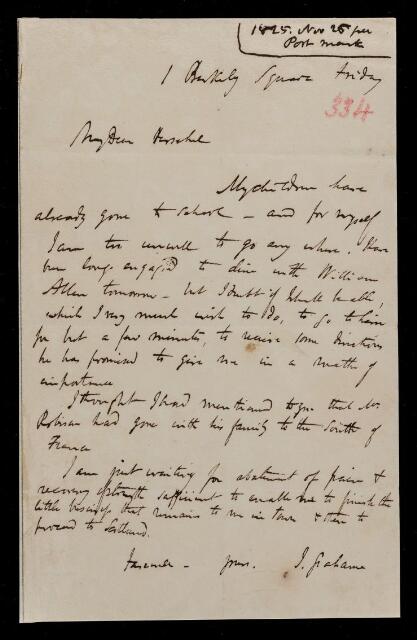 1825. Nov 25 per
Post mark
1 Berkely Square Friday
334
My Dear Herschel
My children have
already gone to School – and for myself
I am too unwell to go any where. I have
been long engaged to dine with William
Allen tomorrow – but I doubt if I shall be able,
which I very much wish to do, to go to him
for but a few minutes, to receive some directions
he has promised to give me in a matter of
importance
I thought I had mentioned to you that Mr
Robison had gone with his family to the South of
France
I am just waiting for abatement of pain &
recovery of strength sufficient to enable me to finish the
little business that remains to me in town & then to
proceed to Scotland.
yours. J. Grahame